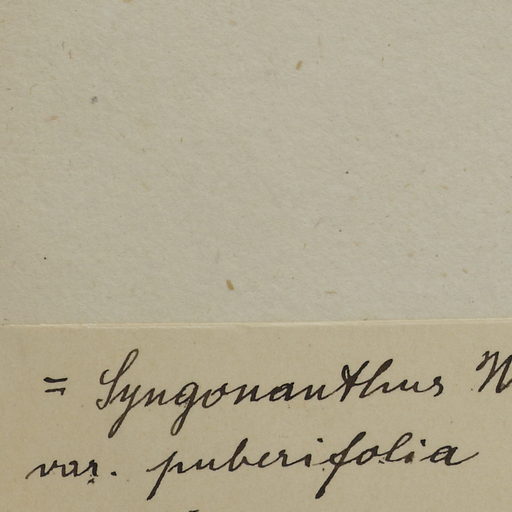 = Syngonanthus
var. puberifolia